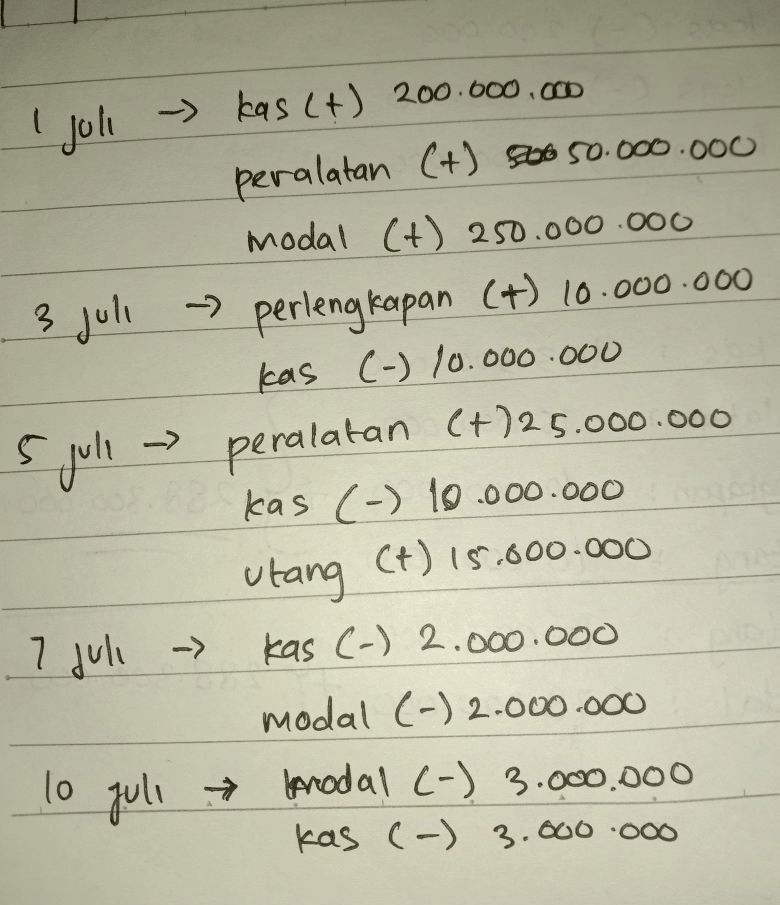 1 juli → kas (+) 200.000.000
peralatan (+) 50.000.000
modal (+) 250.000.000
3 juli → perlengkapan (+) 10.000.000
kas (-) 10.000.000
5 juli → peralatan (+) 25.000.000
kas (-) 10.000.000
utang (+) 15.000.000
7 juli → kas (-) 2.000.000
modal (-) 2.000.000
10 juli → modal (-) 3.000.000
kas (-) 3.000.000